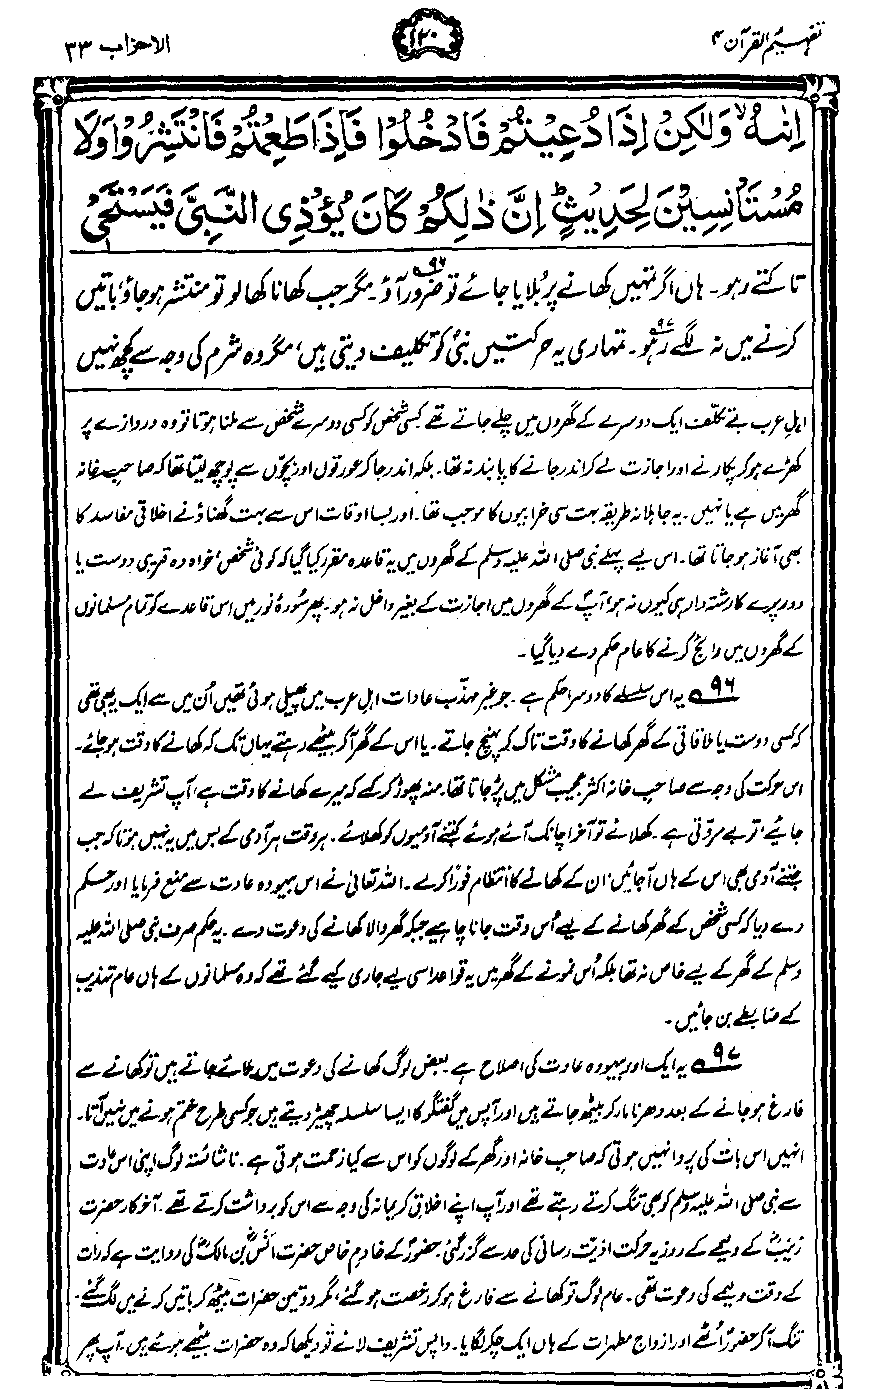 تفہیم القرآن ۴
۱۲۰
الاحزاب ۳۳
اِنٰىهُ ۙ وَلٰكِنْ اِذَا دُعِيْتُمْ فَادْخُلُوْا فَاِذَا طَعِمْتُمْ فَانْتَشِرُوْا وَلَا
مُسْتَاْنِسِيْنَ لِحَدِيْثٍ ۭ اِنَّ ذٰلِكُمْ كَانَ يُؤْذِى النَّبِىَّ فَيَسْتَحْىٖ
تاکتے رہو۔ ہاں اگر تمہیں کھانے پر بُلایا جائے تو ضرور آؤ ۹۶۔ مگر جب کھانا کھالو تو منتشر ہوجاؤ، باتیں
کرنے میں نہ لگے رہو ۹۷۔ تمہاری یہ حرکتیں نبیؐ کو تکلیف دیتی ہیں، مگر وہ شرم کی وجہ سے کچھ نہیں
اہلِ عرب بے تکلف ایک دوسرے کے گھروں میں چلے جاتے تھے۔ کسی شخص کو کسی دوسرے شخص سے ملنا ہوتا تو وہ دروازے پر
کھڑے ہو کر پکارنے اور اجازت لے کر اندر جانے کا پابند نہ تھا۔ بلکہ اندر جا کر عورتوں اور بچوں سے پوچھ لیتا تھا کہ صاحب خانہ
گھر میں ہے یا نہیں۔ یہ جاہلانہ طریقہ بہت سی خرابیوں کا موجب تھا۔ اور بسا اوقات اس سے بہت گھناؤنے اخلاقی مفاسد کا
بھی آغاز ہو جاتا تھا۔ اس لیے پہلے نبی صلی اللہ علیہ وسلم کے گھروں میں یہ قاعدہ مقرر کیا گیا کہ کوئی شخص، خواہ وہ قریبی دوست یا
دور پرے کا رشتہ دار ہی کیوں نہ ہو، آپؐ کے گھروں میں اجازت کے بغیر داخل نہ ہو۔ پھر سُورۂ نور میں اس قاعدے کو تمام مسلمانوں
کے گھروں میں رائج کرنے کا عام حکم دے دیا گیا۔
۹۶ یہ اس سلسلے کا دوسرا حکم ہے۔ جو غیر مہذب عادات اہلِ عرب میں پھیلی ہوئی تھیں اُن میں سے ایک یہ بھی تھی
کہ کسی دوست یا ملاقاتی کے گھر کھانے کا وقت تاک کر پہنچ جاتے۔ یا اس کے گھر آکر بیٹھے رہتے یہاں تک کہ کھانے کا وقت ہو جائے۔
اس حرکت کی وجہ سے صاحب خانہ اکثر عجیب مشکل میں پڑ جاتا تھا۔ منہ پھوڑ کر کہے کہ میرے کھانے کا وقت ہے، آپ تشریف لے
جایئے، تو بے مروّتی ہے۔ کھلائے تو آخر اچانک آئے ہوئے کتنے آدمیوں کو کھلائے۔ ہر وقت ہر آدمی کے بس میں یہ نہیں ہوتا کہ جب
جتنے آدمی بھی اس کے ہاں آجائیں، ان کے کھانے کا انتظام فوراً کرے۔ اللہ تعالیٰ نے اس بیہودہ عادت سے منع فرمایا اور حکم
دے دیا کہ کسی شخص کے گھر کھانے کے لیے اُس وقت جانا چاہیے جبکہ گھر والا کھانے کی دعوت دے۔ یہ حکم صرف نبی صلی اللہ علیہ
وسلم کے گھر کے لیے خاص نہ تھا بلکہ اُس نمونے کے گھر میں یہ قواعد اسی لیے جاری کیے گئے تھے کہ وہ مسلمانوں کے ہاں عام تہذیب
کے ضابطے بن جائیں۔
۹۷ یہ ایک اور بیہودہ عادت کی اصلاح ہے۔ بعض لوگ کھانے کی دعوت میں بلائے جاتے ہیں تو کھانے سے
فارغ ہو جانے کے بعد دھرنا مار کر بیٹھ جاتے ہیں اور آپس میں گفتگو کا ایسا سلسلہ چھیڑ دیتے ہیں جو کسی طرح ختم ہونے میں نہیں آتا۔
انہیں اس بات کی پروا نہیں ہوتی کہ صاحب خانہ اور گھر کے لوگوں کو اس سے کیا زحمت ہوتی ہے۔ ناشائستہ لوگ اپنی اس عادت
سے نبی صلی اللہ علیہ وسلم کو بھی تنگ کرتے رہتے تھے اور آپ اپنے اخلاق کریمانہ کی وجہ سے اس کو برداشت کرتے تھے۔ آخر کار حضرت
زینبؓ کے ولیمے کے روز یہ حرکت اذیت رسانی کی حد سے گزر گئی۔ حضورؐ کے خادمِ خاص حضرت انسؓ بن مالک کی روایت ہے کہ رات
کے وقت ولیمے کی دعوت تھی۔ عام لوگ تو کھانے سے فارغ ہو کر رخصت ہو گئے، مگر دو تین حضرات بیٹھ کر باتیں کرنے میں لگ گئے۔
تنگ آکر حضورؐ اُٹھے اور ازواج مطہرات کے ہاں ایک چکر لگایا۔ واپس تشریف لائے تو دیکھا کہ وہ حضرات بیٹھے ہوئے ہیں۔ آپ پھر